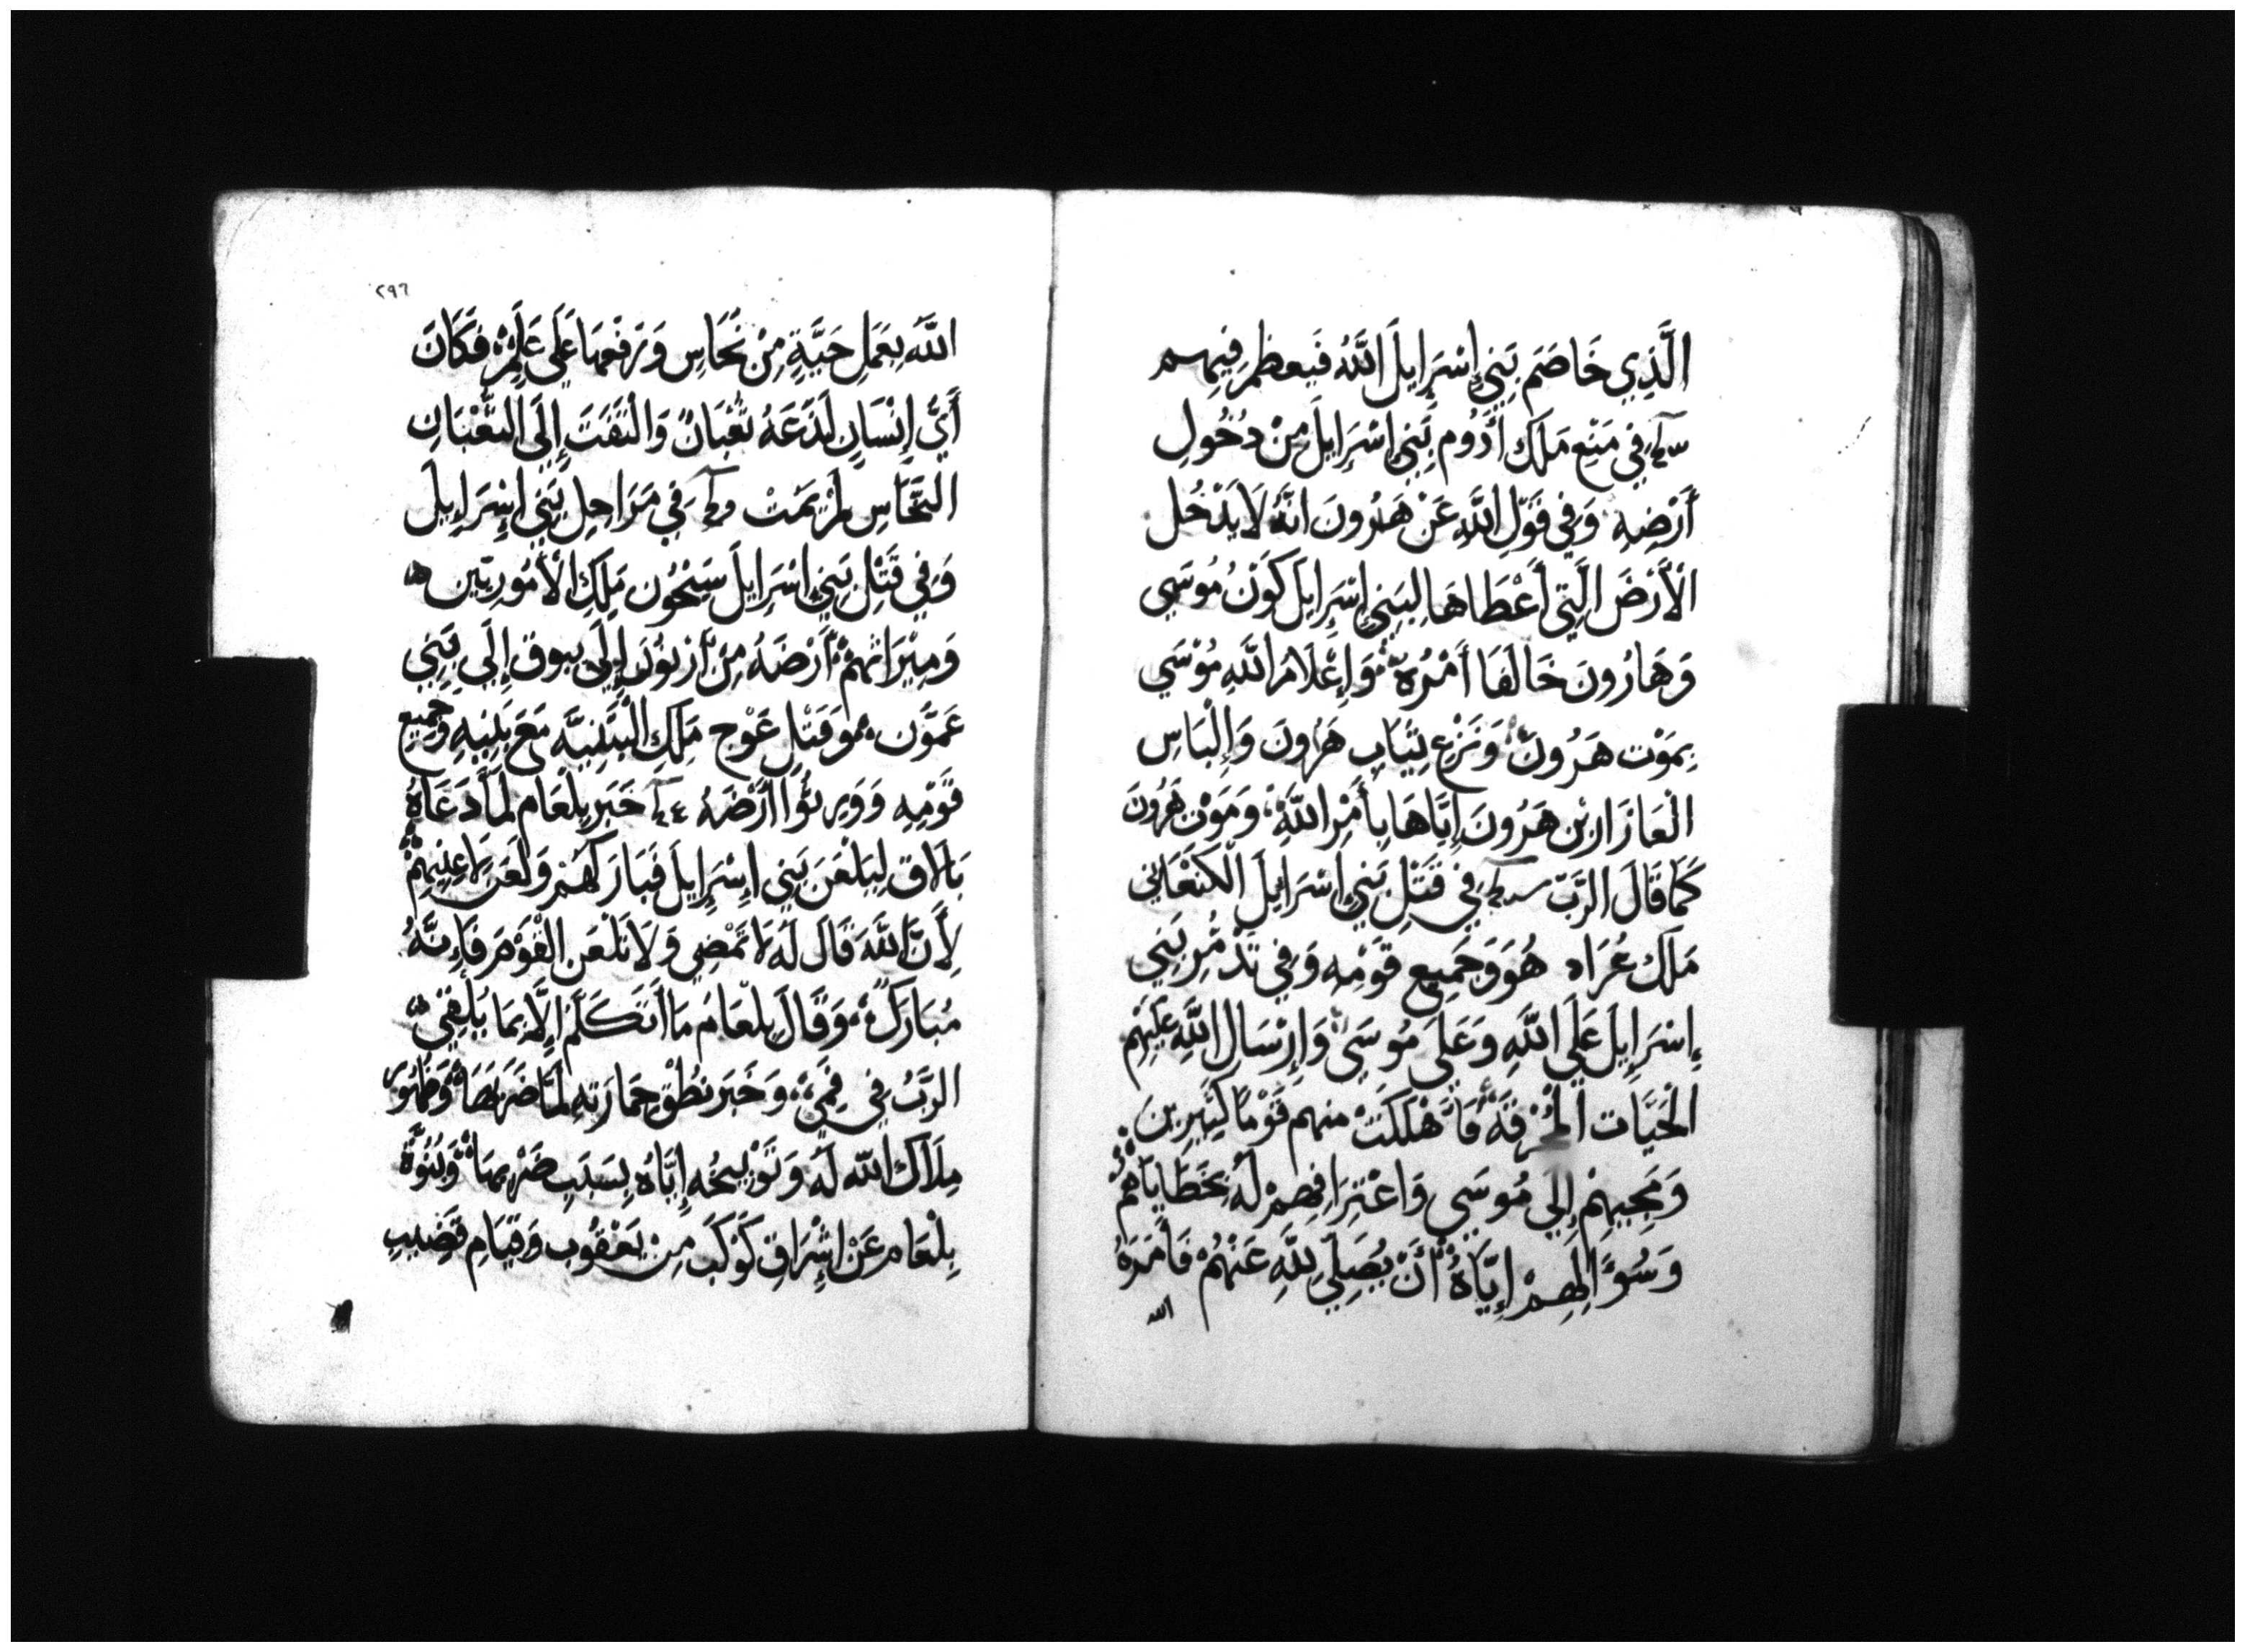 الَّذِي خَاصَمَ بَنِي إِسْرَايِلَ اللَّهُ فَيَعظم فِيهِم
فِي مَنْعِ مَلَك أَدُوم بَنِي إِسْرَايِلَ مِنْ دُخُولِ
أَرْضِهِ وَفِي قَوْلِ اللَّهِ عَنْ هَرُونَ انَّهُ لَا يَدْخُل
الْأَرْضَ الَّتِي أَعْطَاهَا لِبَنِي إِسْرَايِلَ كَوْنُ مُوسَي
وَهَارُونَ خَالَفَا أَمْرَهُ وَإِعْلَامُ اللَّهِ مُوْسَي
بِمَوْت هَرُونَ وَنَزْعِ ثِيَابِ هَرُونَ وَإِلْبَاسِ
الْعَازَارَ بْن هَرُونَ إِيَّاهَا بِأَمْرِ اللَّهِ وَمَوْت هَرُونَ
كَمَا قَالَ الرَّبّ فِي قَتْلِ بَنِي إِسْرَايِلَ الْكَنْعَانِي
مَلَك عُرَاد هُوَ وَجَمِيع قَوْمِهِ وَفِي تَذَمُّرِ بَنِي
إِسْرَايِلَ عَلَي اللَّهِ وَعَلَى مُوسَي وَإِرْسَال اللَّهِ عَلَيْهِم
الْحَيَّات الْمُحْرِقَة فَأَهْلَكَتْ مِنهم قَوْمًا كَثِيرِين
وَمَجِيِهِمْ إِلَي مُوسَي وَاعْتِرَافِهِمْ لَهُ بِخَطَايَاهُمْ
وَسُوَالِهِمْ إِيَّاهُ أَنْ يُصَلِّي لِلَّهِ عَنْهُمْ فَأَمَرَهُ
الله
٢٩٦
اللَّه بِعَمَلِ حَيَّةٍ مِنْ نُحَاسٍ وَرَفْعِهَا عَلَي عَلَمٍ فَكَانَ
أَيُّ إِنْسَانٍ لَدَغَهُ ثُعْبَانٌ وَالْتَفَتَ إِلَي الثُّعْبَانِ
النُّحَاسِ لَمْ يَمُتْ فِي مَرَاحِل بَنِي إِسْرَايِلَ
وَفِي قَتْلِ بَنِي إِسْرَايِلَ سَيْحُون مَلِكِ الْأَمُورِيّين
وَمِيْرَاثِهِمْ أَرْضَهُ مِنْ أَرْنُونَ إِلَي يبوق إِلَي بَنِي
عَمُّون وَقَتْلِ عَوْج مَلِكِ الْبَثَنِيَّه مَعَ بَنِيْهِ وَجَمِيع
قَوْمِهِ وَوَرِثُوا أَرْضَهُ خَبَر بِلْعَام لَمَّا دَعَاهُ
بَالَاق لِيَلْعَنَ بَنِي إِسْرَايِلَ فَبَارَكَهُمْ وَلَعَن لَاعِنِيهِمْ
لِأَنَّ اللَّهَ قَالَ لَهُ لَا تَمْضِي وَلَا تَلْعَن الْقَوْمَ فَإِنَّهُ
مُبَارَكٌ وَقَالَ بِلْعَامُ مَا أَتَكَلَّمُ إِلَّا بِمَا يُلْقِي
الرَّبُّ فِي فَمِي وَخَبَر نُطْقِ حِمَارَتِهِ لَمَّا ضَرَبَهَا وَظُهُور
مَلَاك اللَّه لَهُ وَتَوْبِيْخُه إِيَّاهُ بِسَبَبِ ضَرْبِهَا وَنُبُوَّة
بِلْعَام عَنْ إِشْرَاقِ كَوْكَبٍ مِنْ يَعْقُوب وَقِيَامِ قَضِيبِ